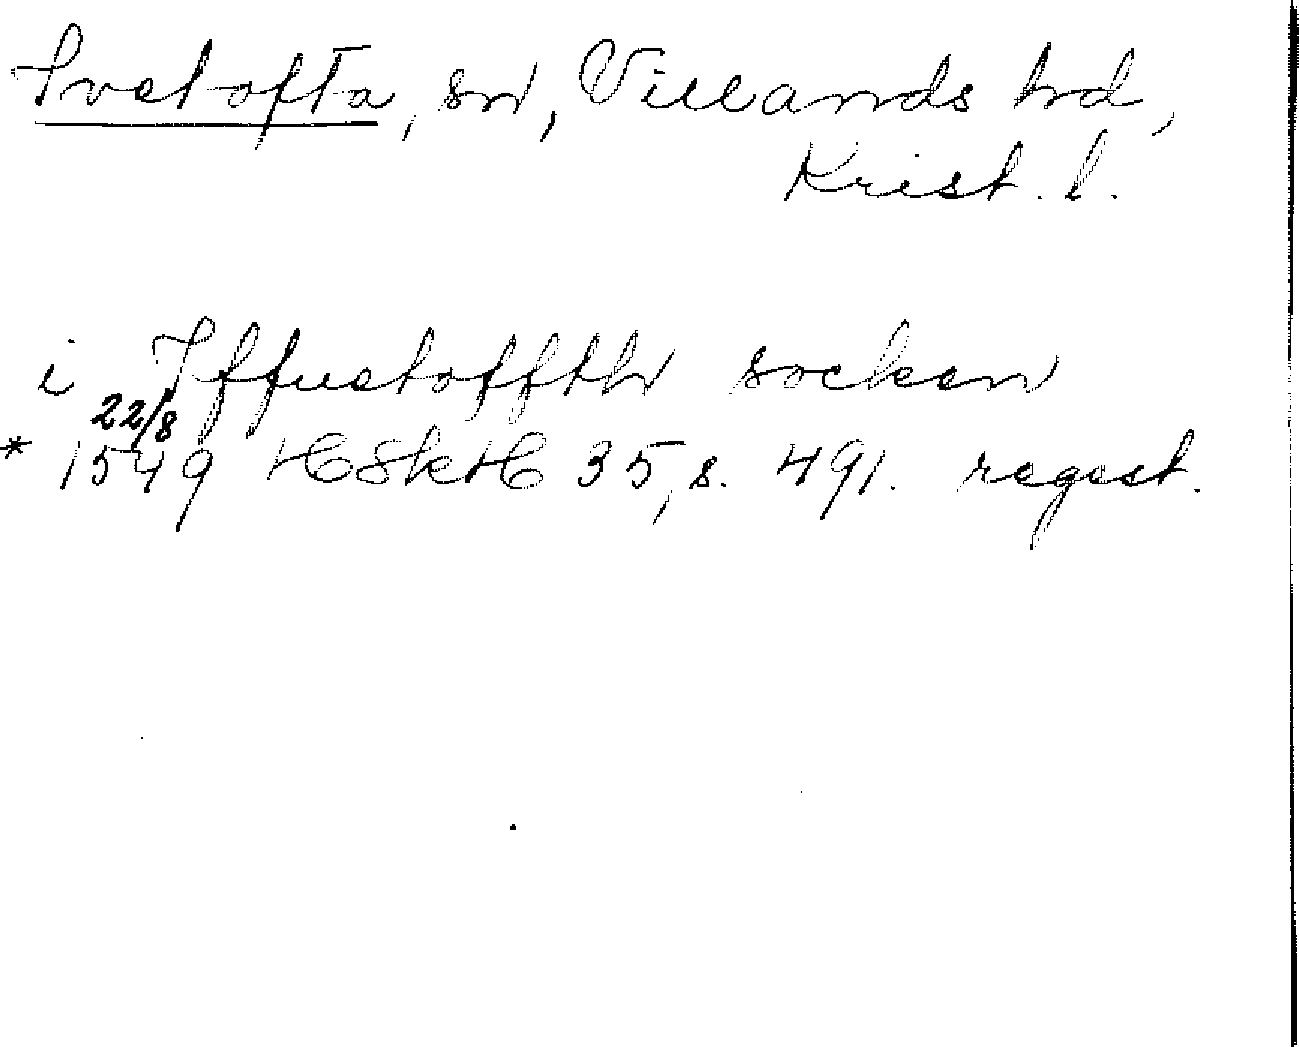 Ivetofta, sn, Villands hd,
Krist. l.
i Iffuetoffthe socken
22/8
* 1549 HSkH 35, s. 491. regest.